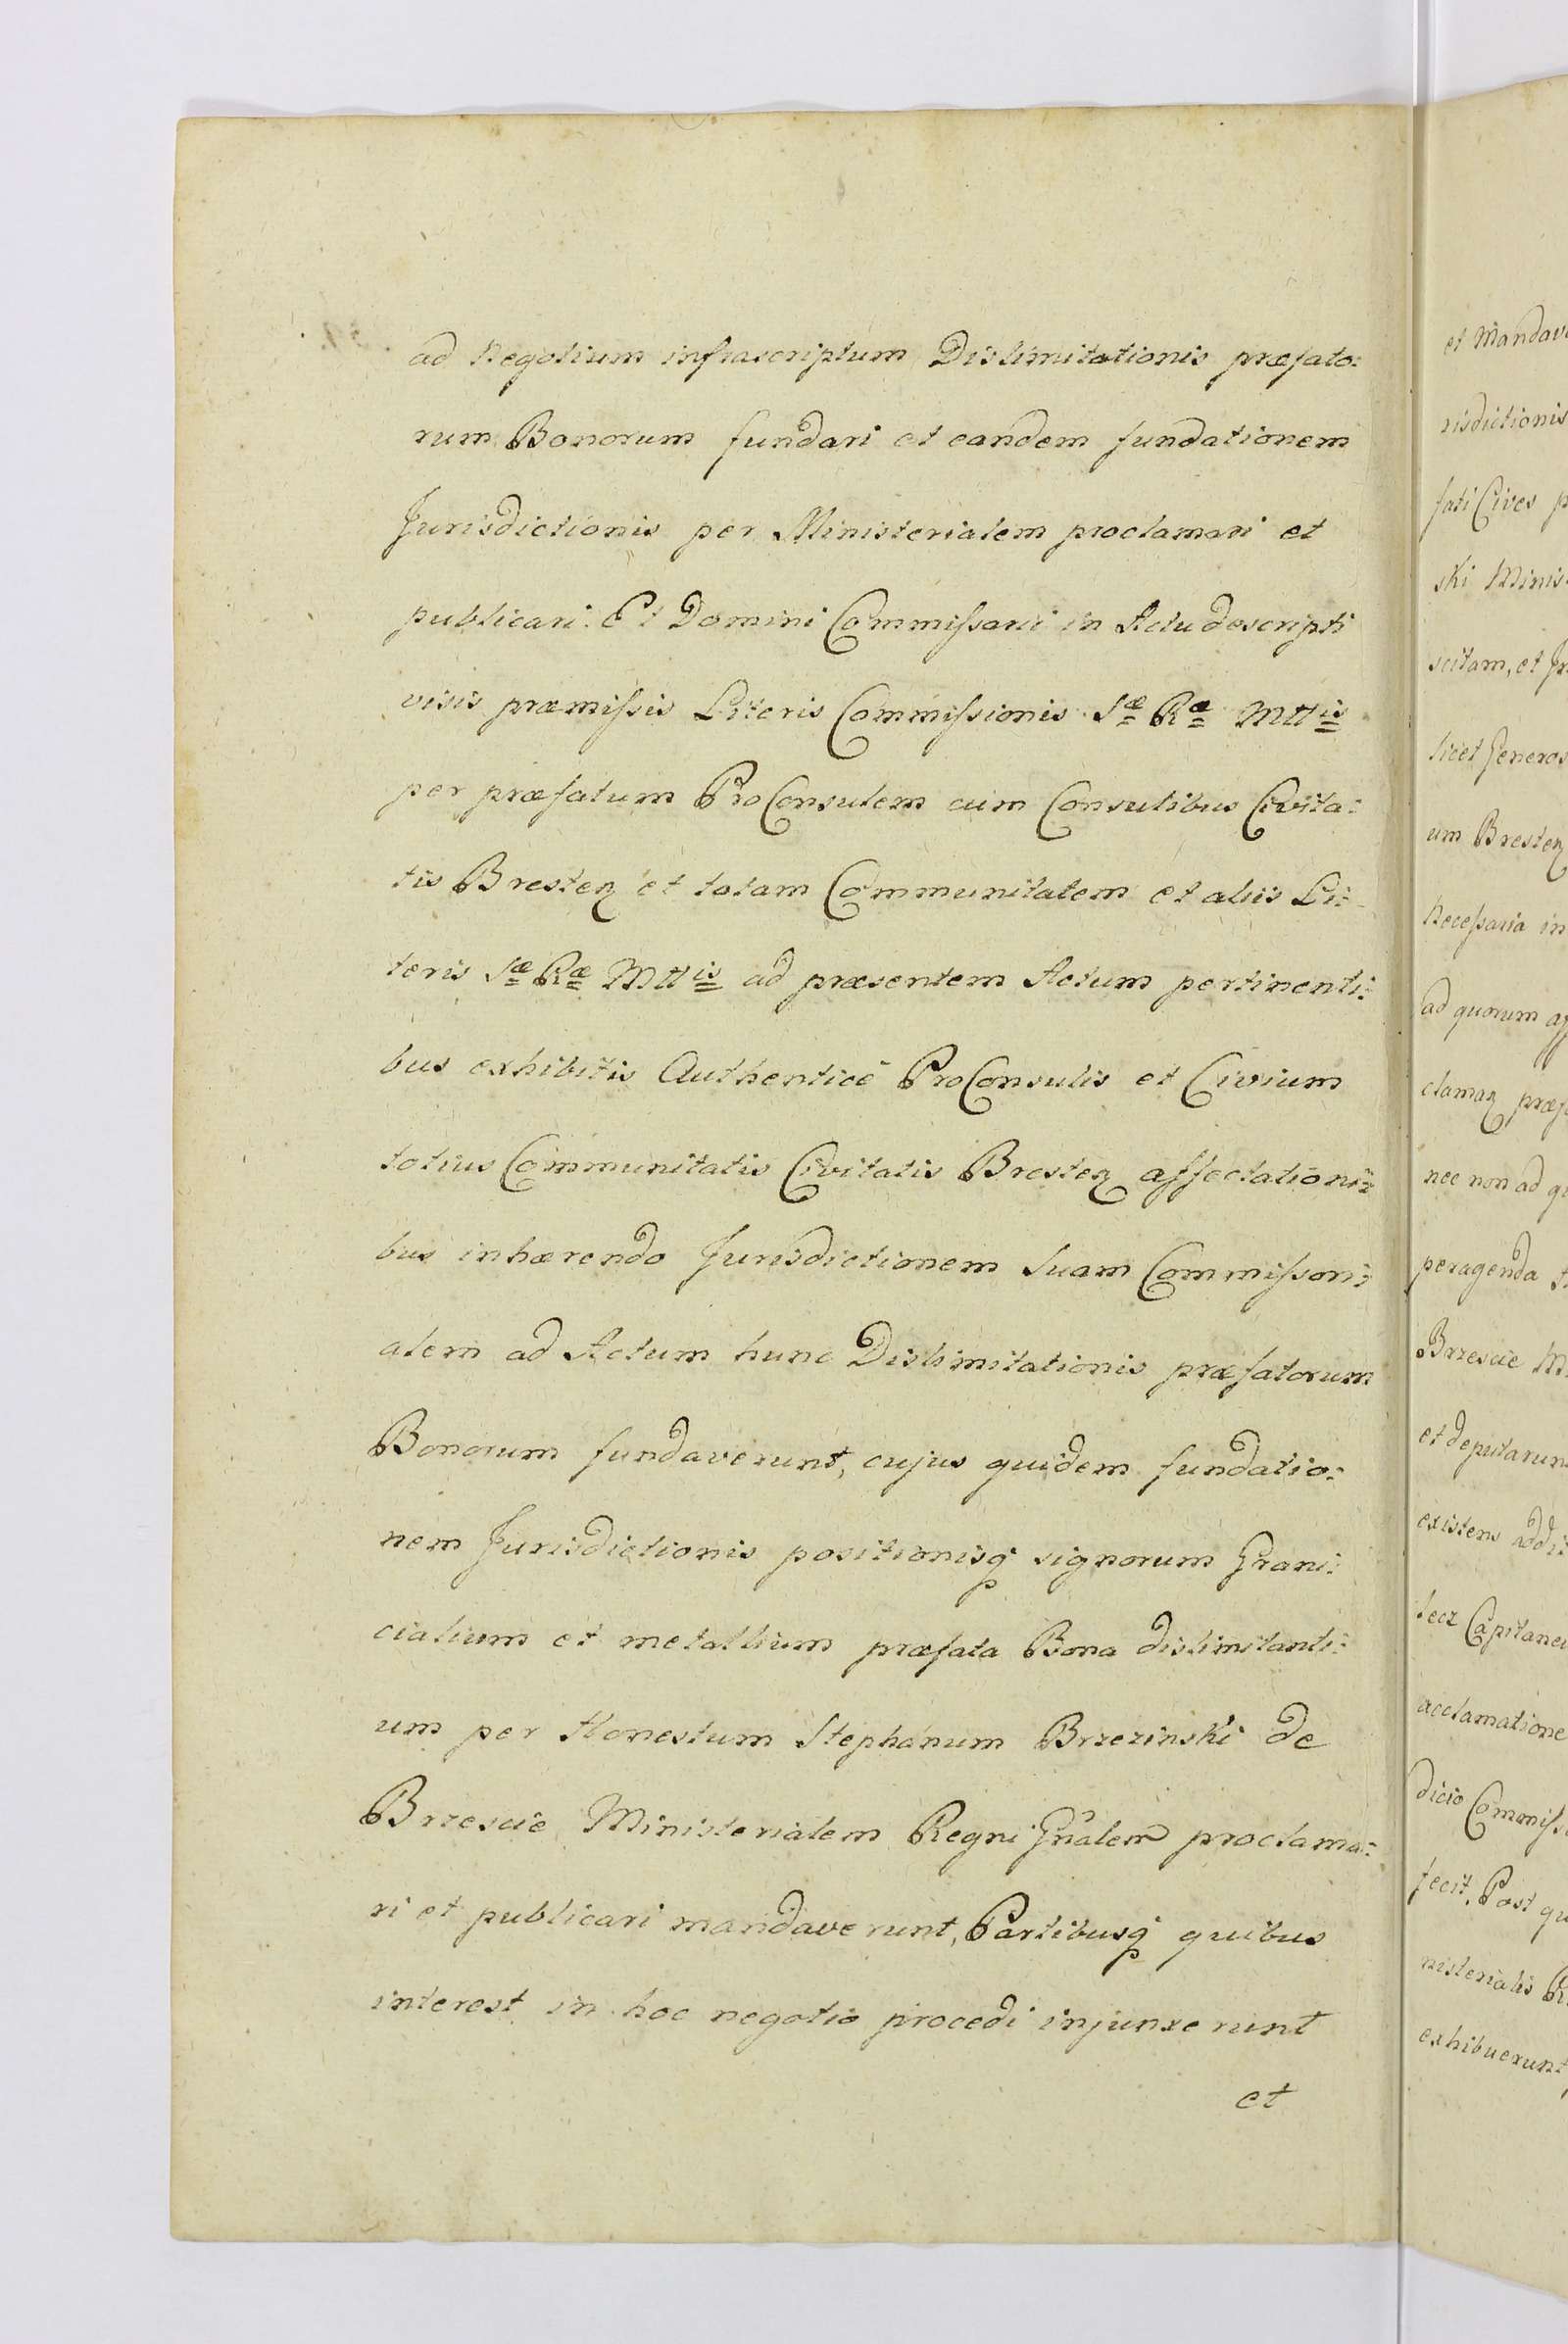 ad Negotium infrascriptum Dislimitationis præfato:
rum Bonorum fundari et eandem fundationem
Jurisdictionis per Ministerialem proclamari et
publicari. Et Domini Commissarii in Actu descripti
visis præmissis Literis Commissionis Sæ Ræ Mttis
per præfatum ProConsulem cum Consulibus Civita:
tis Bresten et totam Communitatem et aliis Lit:
teris Sæ Ræ Mttis ad præsentem Actum pertinenti:
bus exhibitis Authenticè ProConsulis et Civium
totius Communitatis Civitatis Bresten affectationi:
bus inhærendo Jurisdictionem Suam Commissori:
alem ad Actum hunc Dislimitationis præfatorum
Bonorum fundaverunt, cujus quidem fundatio:
nem Jurisdictionis positionisq signorum Grani:
cialium et metallium præfata Bona dislimitanti:
um per Honestum Stephanum Brzezinski de
Brzescie Ministerialem Regni Gnalem proclama:
ri et publicari mandaverunt, Partibusq quibus
interest in hoc negotio procedi injunxerunt
et
et Mandav
risdictionis
fati Cives p
ski Minis
scitam, et
licet Generos
um Bresten
Necessaria in
ad quorum
claman præf
nec non ad qu
peragenda
Brzescie M
et deputarun
existens addi
Capitanei
acclamatione
dicio Commiss
fecit. Post qu
nisterialis R
exhibuerunt